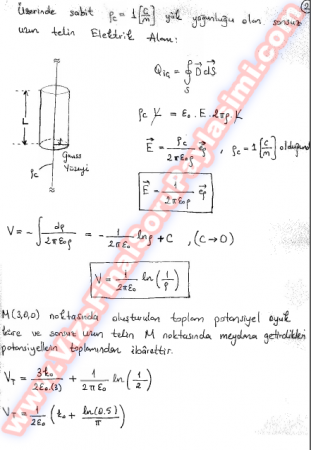 2
Üzerinde sabit ρc = 1 [C/m] yük yoğunluğu olan sonsuz
uzun telin Elektrik Alanı:
Qiç = ∮S D⃗ dS⃗
ρc L = ε0 . E . 2πρ . L
L
E⃗ = ρc / 2πε0ρ e⃗ρ , ρc = 1 [C/m] olduğundan
Gauss
Yüzeyi
ρc
E⃗ = 1 / 2πε0ρ e⃗ρ
V = -∫ dρ / 2πε0ρ = - 1 / 2πε0 lnρ + C , (C→0)
V = 1 / 2πε0 ln (1/ρ)
M(3,0,0) noktasında oluşturulan toplam potansiyel oyuk
küre ve sonsuz uzun telin M noktasında meydana getirdikleri
potansiyellerin toplamından ibarettir.
VT = 3k0 / 2ε0.(3) + 1 / 2πε0 ln (1/2)
VT = 1 / 2ε0 (k0 + ln(0.5) / π)
www.VizeFinalSoruPaylasimi.com